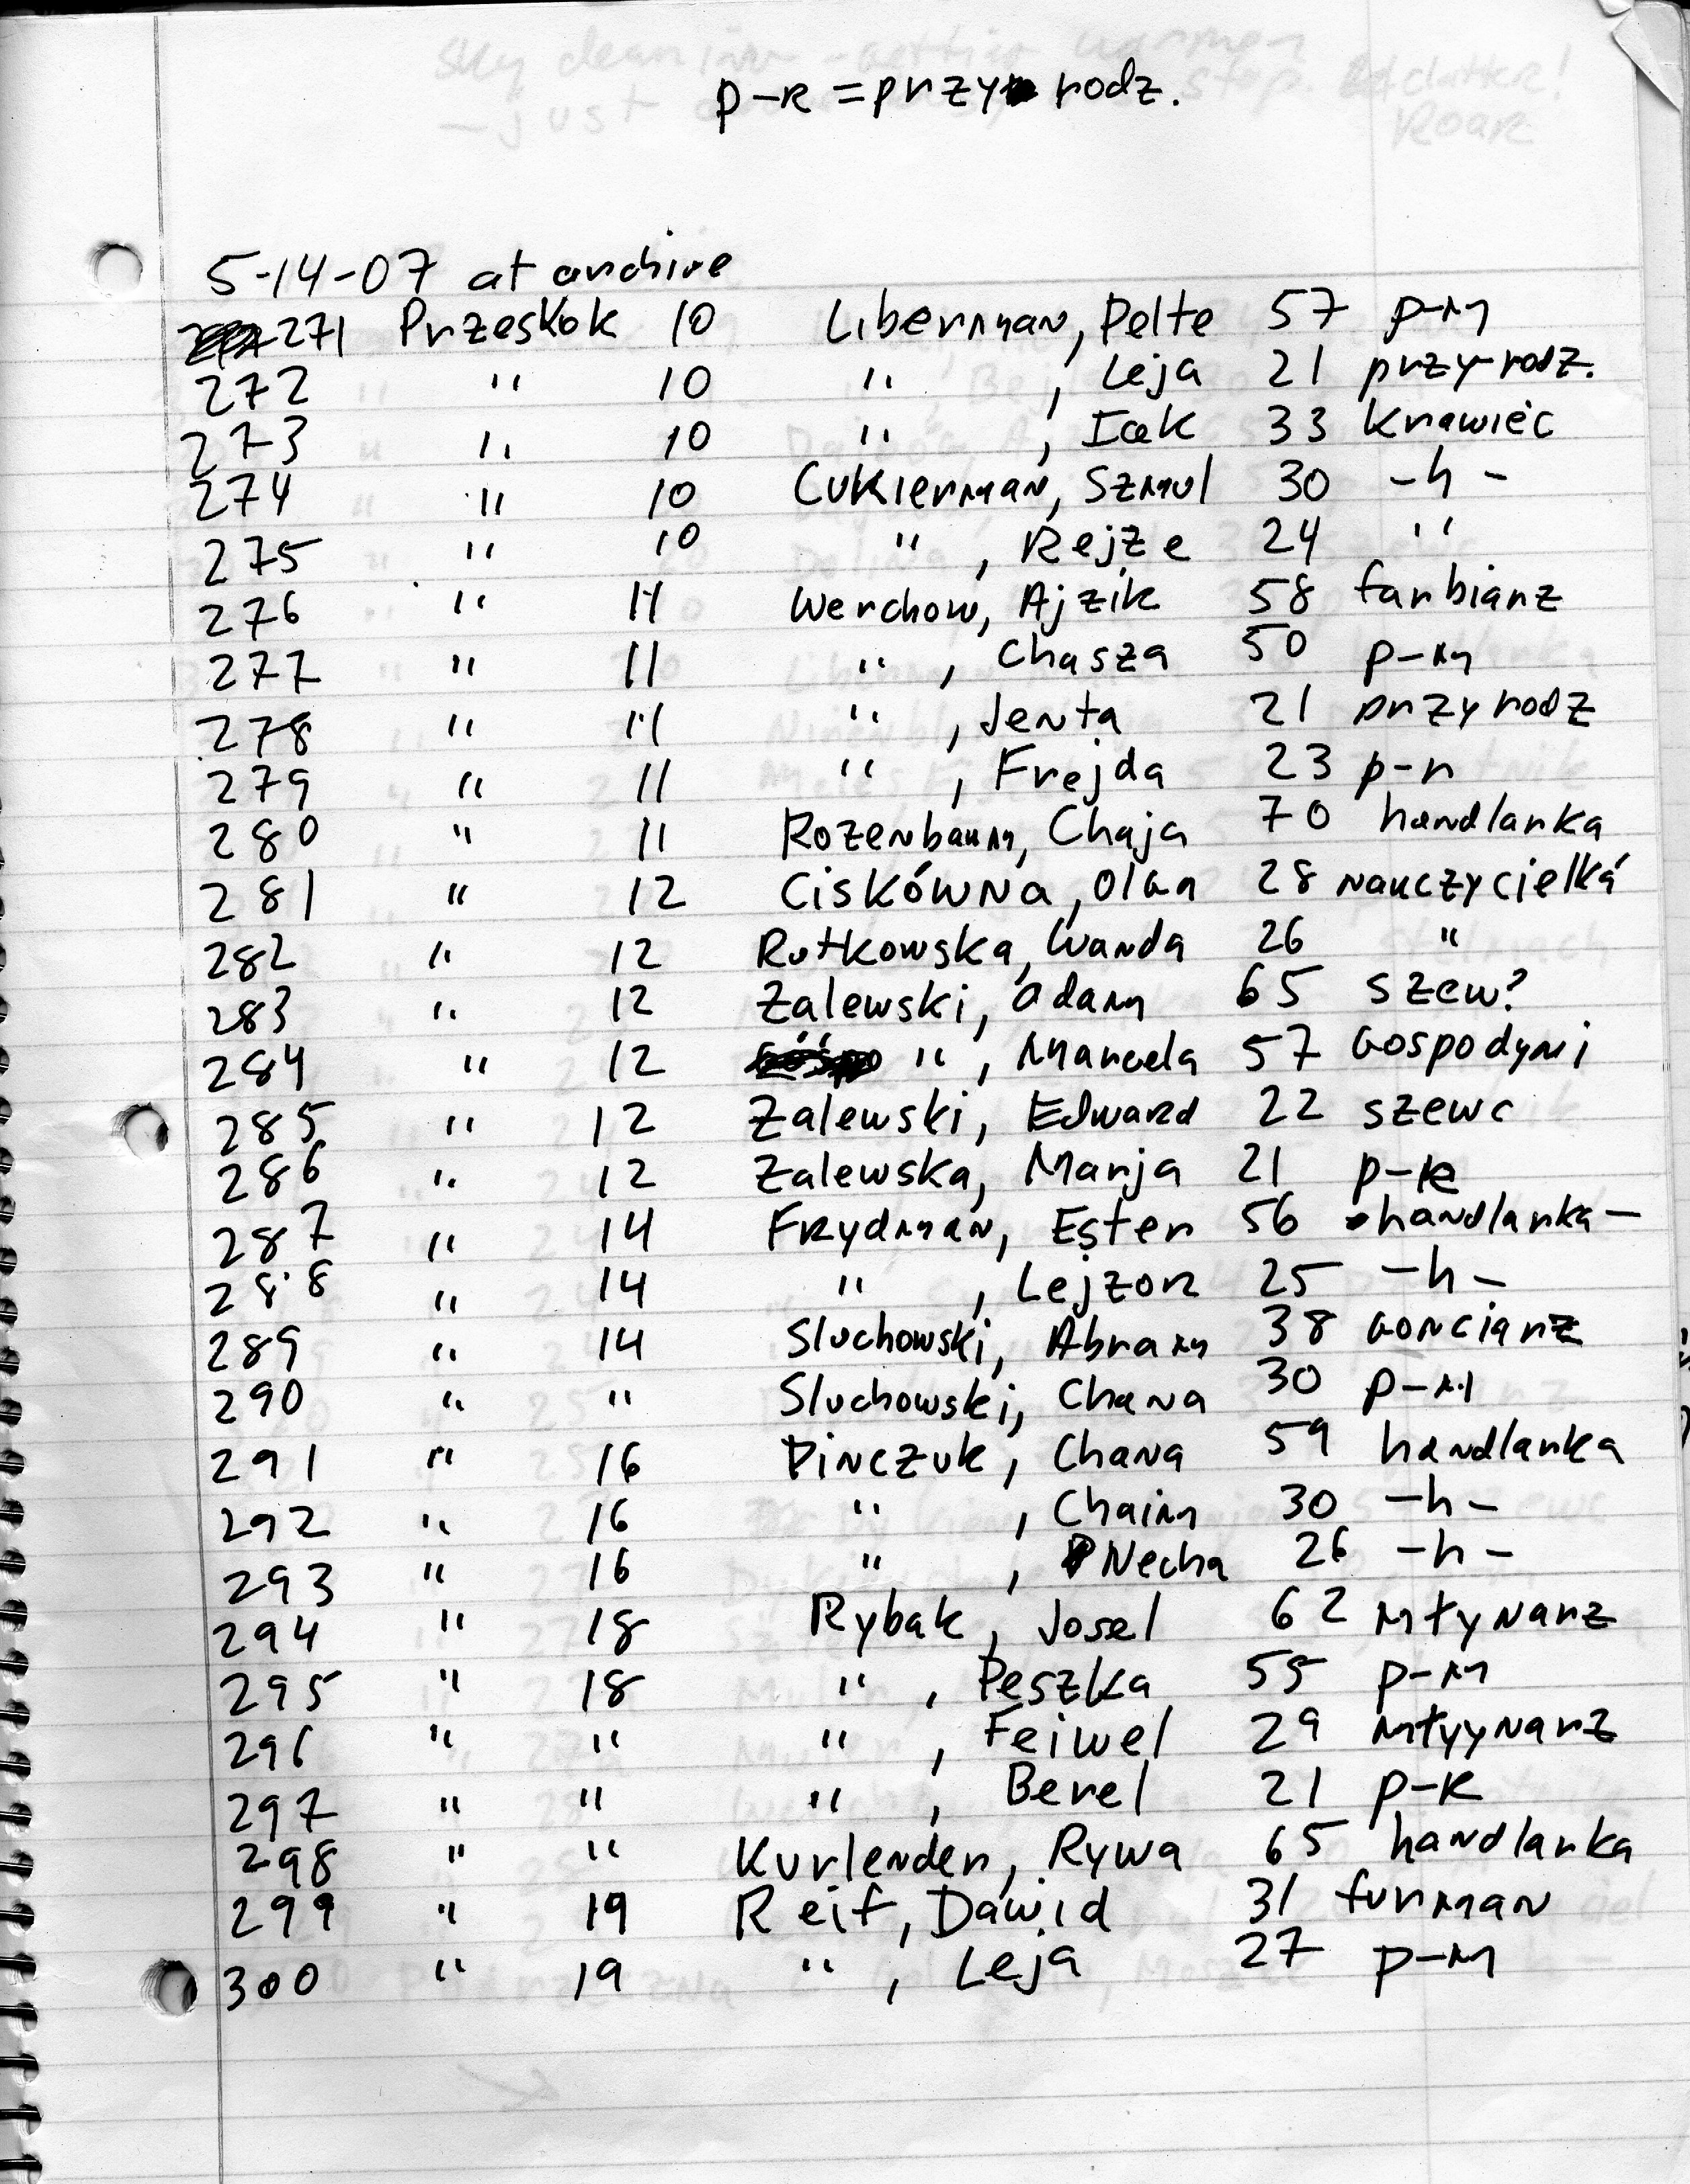 p-R = przy rodz.
5-14-07 at archive
271 Przeskok 10 Liberman, Pelte 57 p-m
272 " 10 " , Leja 21 przy-rodz.
273 " 10 " , Icek 33 krawiec
274 " 10 Cukierman, Szmul 30 -h-
275 " 10 " , Rejze 24 "
276 " 11 Werchow, Ajzik 58 farbiarz
277 " 11 " , Chasza 50 p-m
278 " 11 " , Jenta 21 przy rodz
279 " 11 " , Frejda 23 p-r
280 " 11 Rozenbaum, Chaja 70 handlarka
281 " 12 Ciskówna, Olga 28 nauczycielka
282 " 12 Rutkowska, Wanda 26 "
283 " 12 Zalewski, Adam 65 szew?
284 " 12 " , Marcela 57 Gospodyni
285 " 12 Zalewski, Edward 22 szewc
286 " 12 Zalewska, Marja 21 p-R
287 " 14 Frydman, Ester 56 handlarka -
288 " 14 " , Lejzor 25 -h-
289 " 14 Sluchowski, Abram 38 Gonciarz
290 " " Sluchowski, Chana 30 p-m
291 " 16 Pinczuk, Chana 59 handlarka
292 " 16 " , Chaim 30 -h-
293 " 16 " , Necha 26 -h-
294 " 18 Rybak, Josel 62 młynarz
295 " 18 " , Peszka 55 p-m
296 " " " , Feiwel 29 młyynarz
297 " " " , Berel 21 p-R
298 " " Kurlender, Rywa 65 handlarka
299 " 19 Reif, Dawid 31 furman
300 " 19 " , Leja 27 p-m